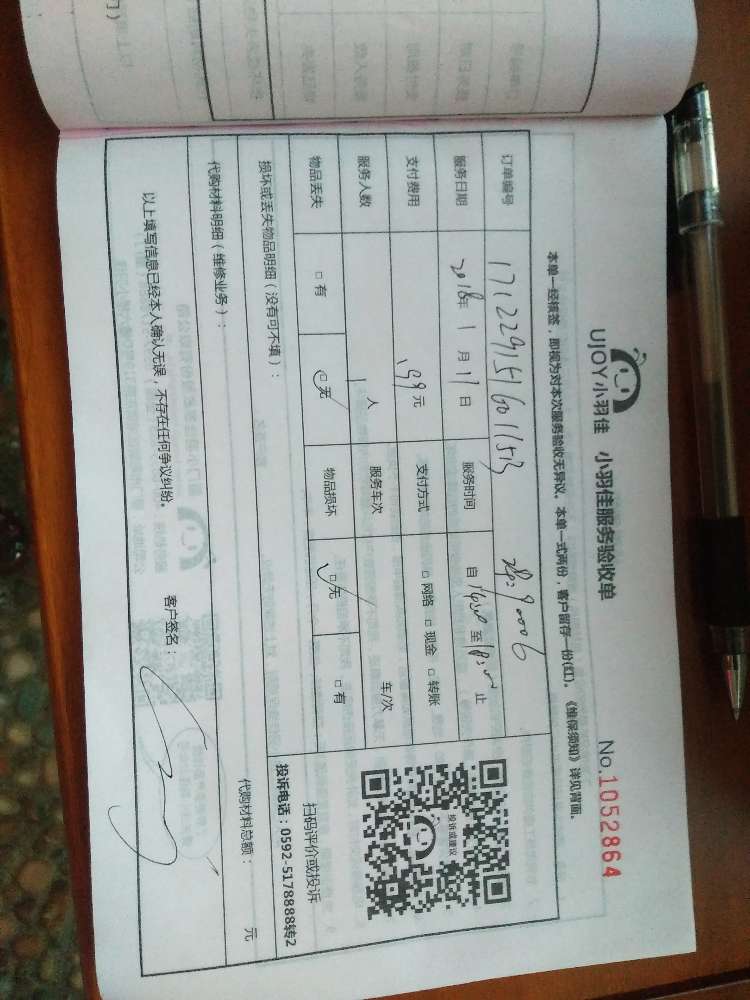 UJOY小羽佳 小羽佳服务验收单
No.1052864
本单一经核签,即视为对本次服务验收无异议。本单一式两份,客户留存一份(红)。《维保须知》详见背面。
订单编号
服务日期 2018年 1 月 17 日 服务时间 自 14:50 至 18:00 止
支付费用 199元 支付方式 □ 网络 □ 现金 □ 转账
服务人数 1 人 服务车次 车/次
物品丢失 □ 有 □ 无 物品损坏 □ 无 □ 有
投诉或建议
扫码评价或投诉
投诉电话:0592-5178888转2
损坏或丢失物品明细(没有可不填):
代购材料明细(维修业务): 代购材料总额: 元
以上填写信息已经本人确认无误,不存在任何争议纠纷。
客户签名: